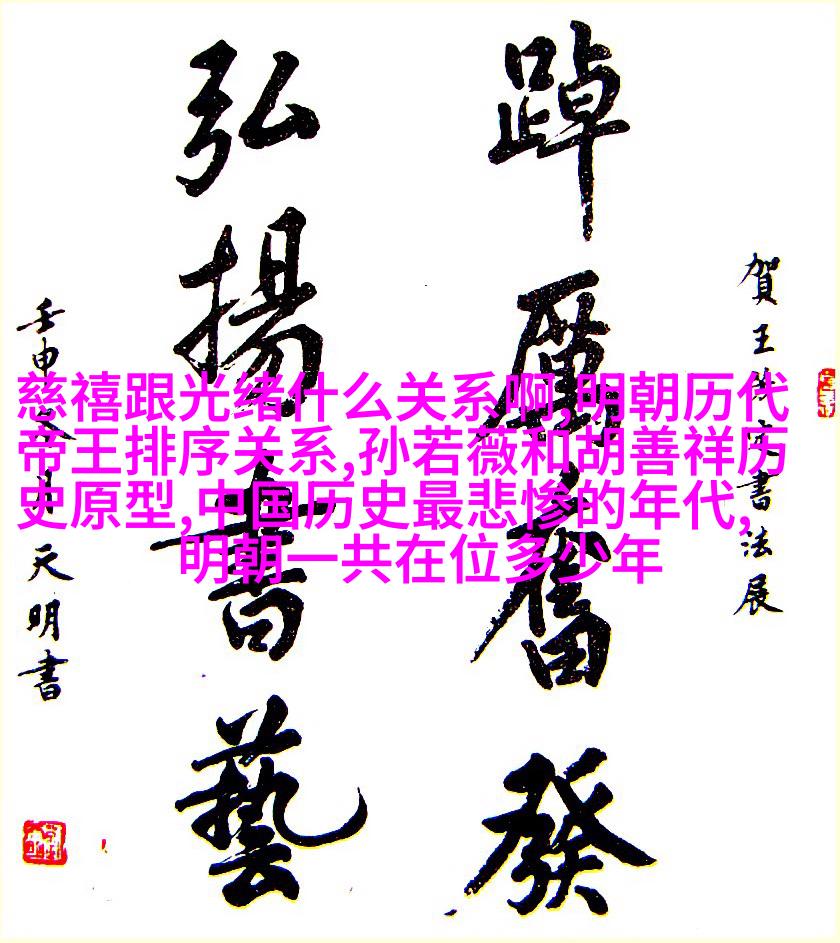 賀王
書法展
踔厲奮發
弘揚書藝
壬申
月天明書
慈禧跟光绪什么关系啊,明朝历代
帝王排序关系,孙若薇和胡善祥历
史原型,中国历史最悲惨的年代,
明朝一共在位多少年